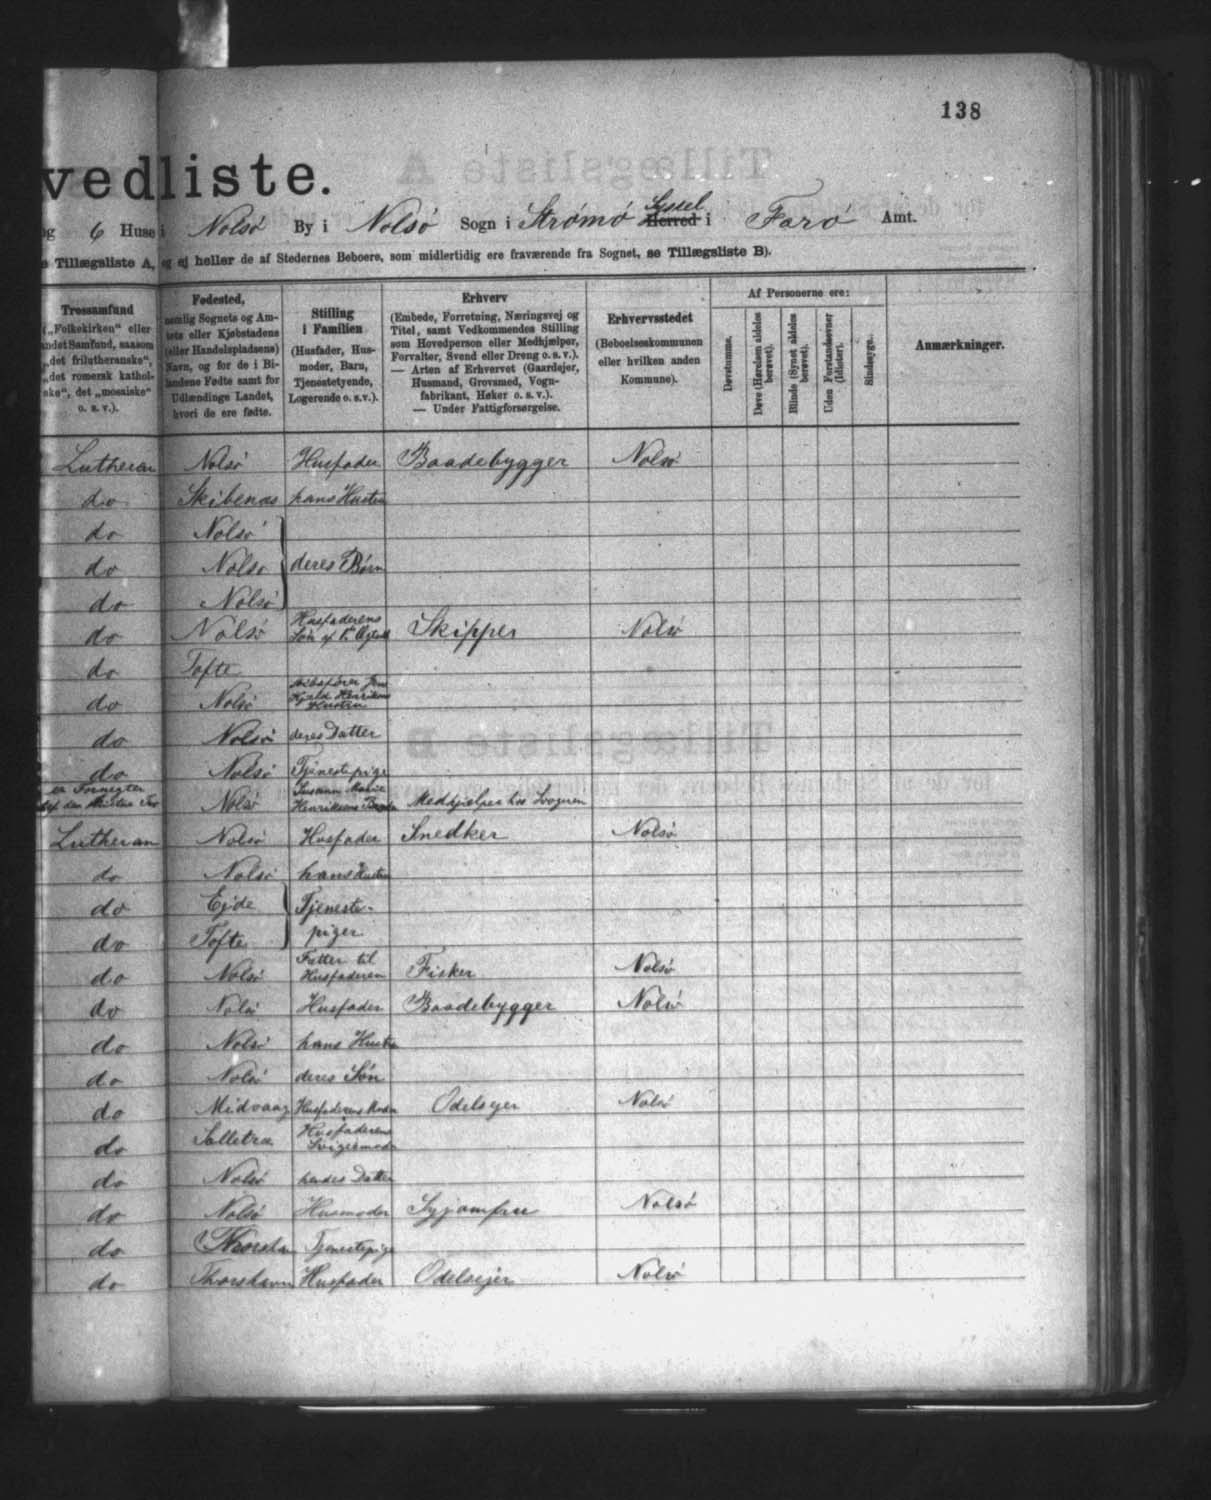 138
vedliste.
og 6 Huse i Nolsö By i Nolsö Sogn i Strømø Syssel Herred i Farö Amt.
e Tillægsliste A, og ej heller de af Stedernes Beboere, som midlertidig ere fraværende fra Sognet, se Tillægsliste B).
Trossamfund
(„Folkekirken“ eller
andet Samfund, saasom
„det frilutheranske“,
„det romersk kathol-
ske“, det „mosaiske“
o. s. v.).
Fødested,
nemlig Sognets og Am-
tets eller Kjøbstadens
(eller Handelspladsens)
Navn, og for de i Bi-
landene Fødte samt for
Udlændinge Landet,
hvori de ere fødte.
Stilling
i Familien
(Husfader, Hus-
moder, Barn,
Tjenestetyende,
Logerende o. s. v.).
Erhverv
(Embede, Forretning, Næringsvej og
Titel, samt Vedkommendes Stilling
som Hovedperson eller Medhjælper,
Forvalter, Svend eller Dreng o. s. v.).
— Arten af Erhvervet (Gaardejer,
Husmand, Grovsmed, Vogn-
fabrikant, Høker o. s. v.).
— Under Fattigforsørgelse.
Erhvervsstedet
(Beboelseskommunen
eller hvilken anden
Kommune).
Af Personerne ere:
Døvstumme.
Døve (Hørelsen aldeles
berøvet).
Blinde (Synet aldeles
berøvet).
Uden Forstandsevner
(Idioter).
Sindssyge.
Anmærkninger.
Lutheran Nolsö Husfader Baadebygger Nolsö
do Skibenæs hans Hustru
do Nolsö
do Nolsö deres Börn
do Nolsö
do Nolsö Husfaderens Sön af Skipper Nolsö
do Tofte
do Nolsö Hustru
do Nolsö deres Datter
do Nolsö Tjenestepige
Nolsö Susanne Marie Henriksens Medhjælper hos Svogeren
Lutheran Nolsö Husfader Snedker Nolsö
do Nolsö hans Hustru
do Ejde Tjeneste-
do Tofte piger
do Nolsö Fatter til Husfaderen Fisker Nolsö
do Nolsö Husfader Baadebygger Nolsö
do Nolsö hans Hustru
do Nolsö deres Sön
do Midvaag Husfaderens Odelsejer Nolsö
do Husfaderens Svigermoder
do Nolsö hendes Datter
do Nolsö Husmoder Syjomfru Nolsö
do Thorshavn Tjenestepige
do Thorshavn Husfader Odelsejer Nolsö